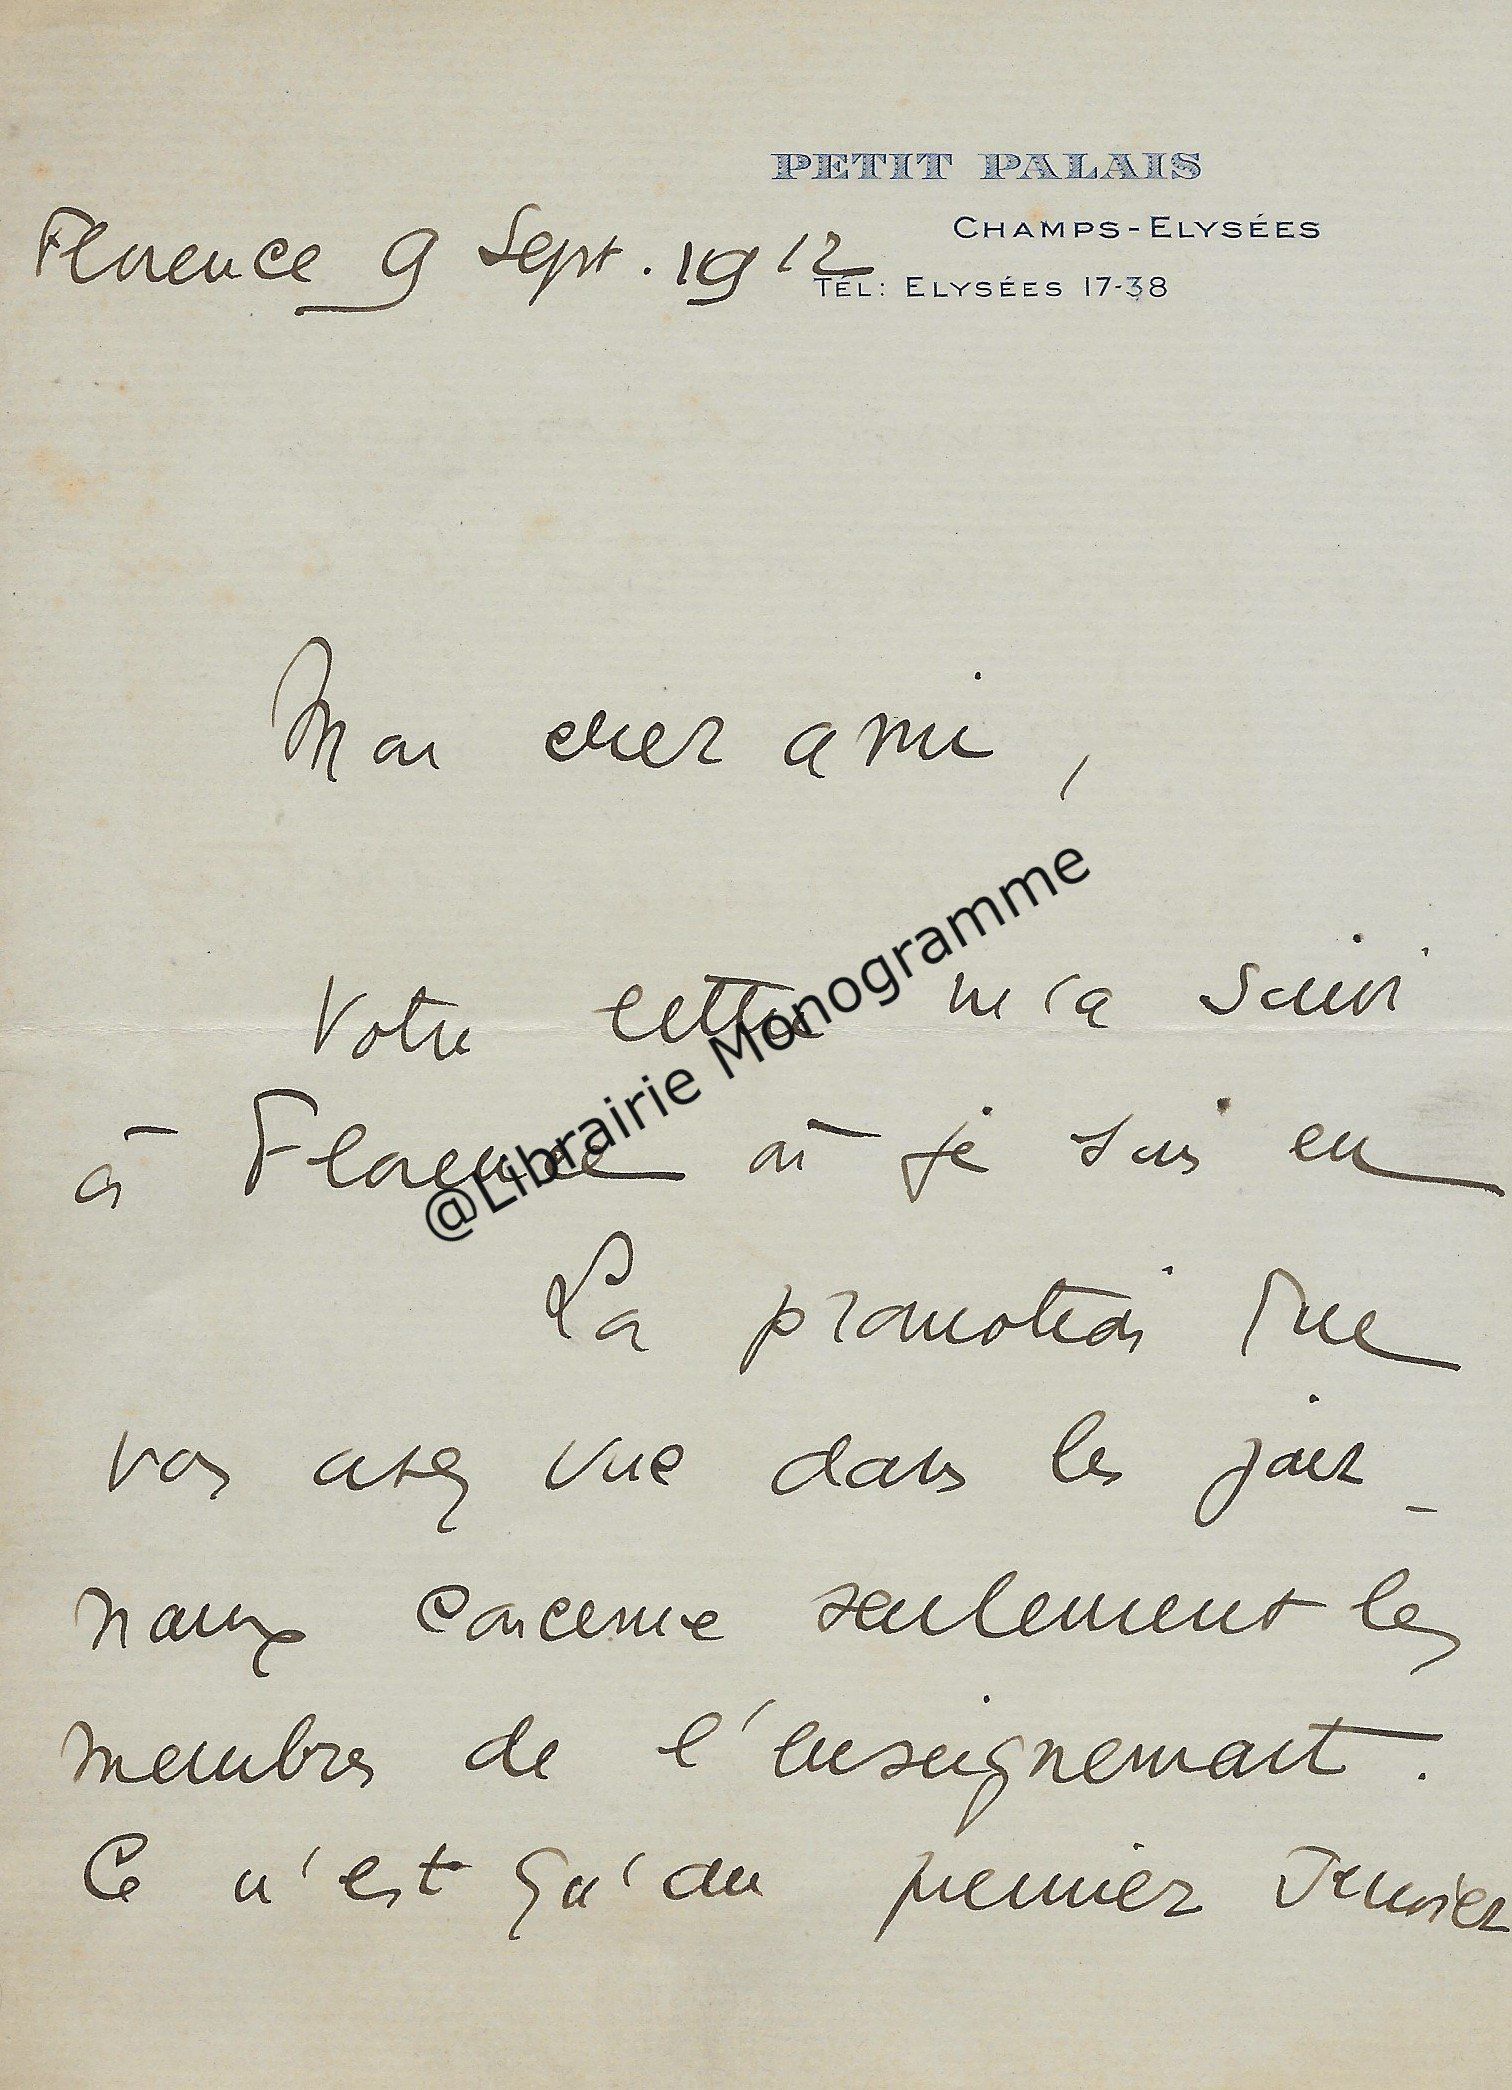 PETIT PALAIS
CHAMPS-ELYSÉES
TÉL: ELYSÉES 17-38
Florence 9 Sept. 1912
Mon cher ami,
Votre lettre m'a suivi
à Florence où je suis en
La promotion que
vous avez vue dans les jour-
naux concerne seulement les
membres de l'enseignement.
Ce n'est qu'au premier Janvier
@Librairie Monogramme